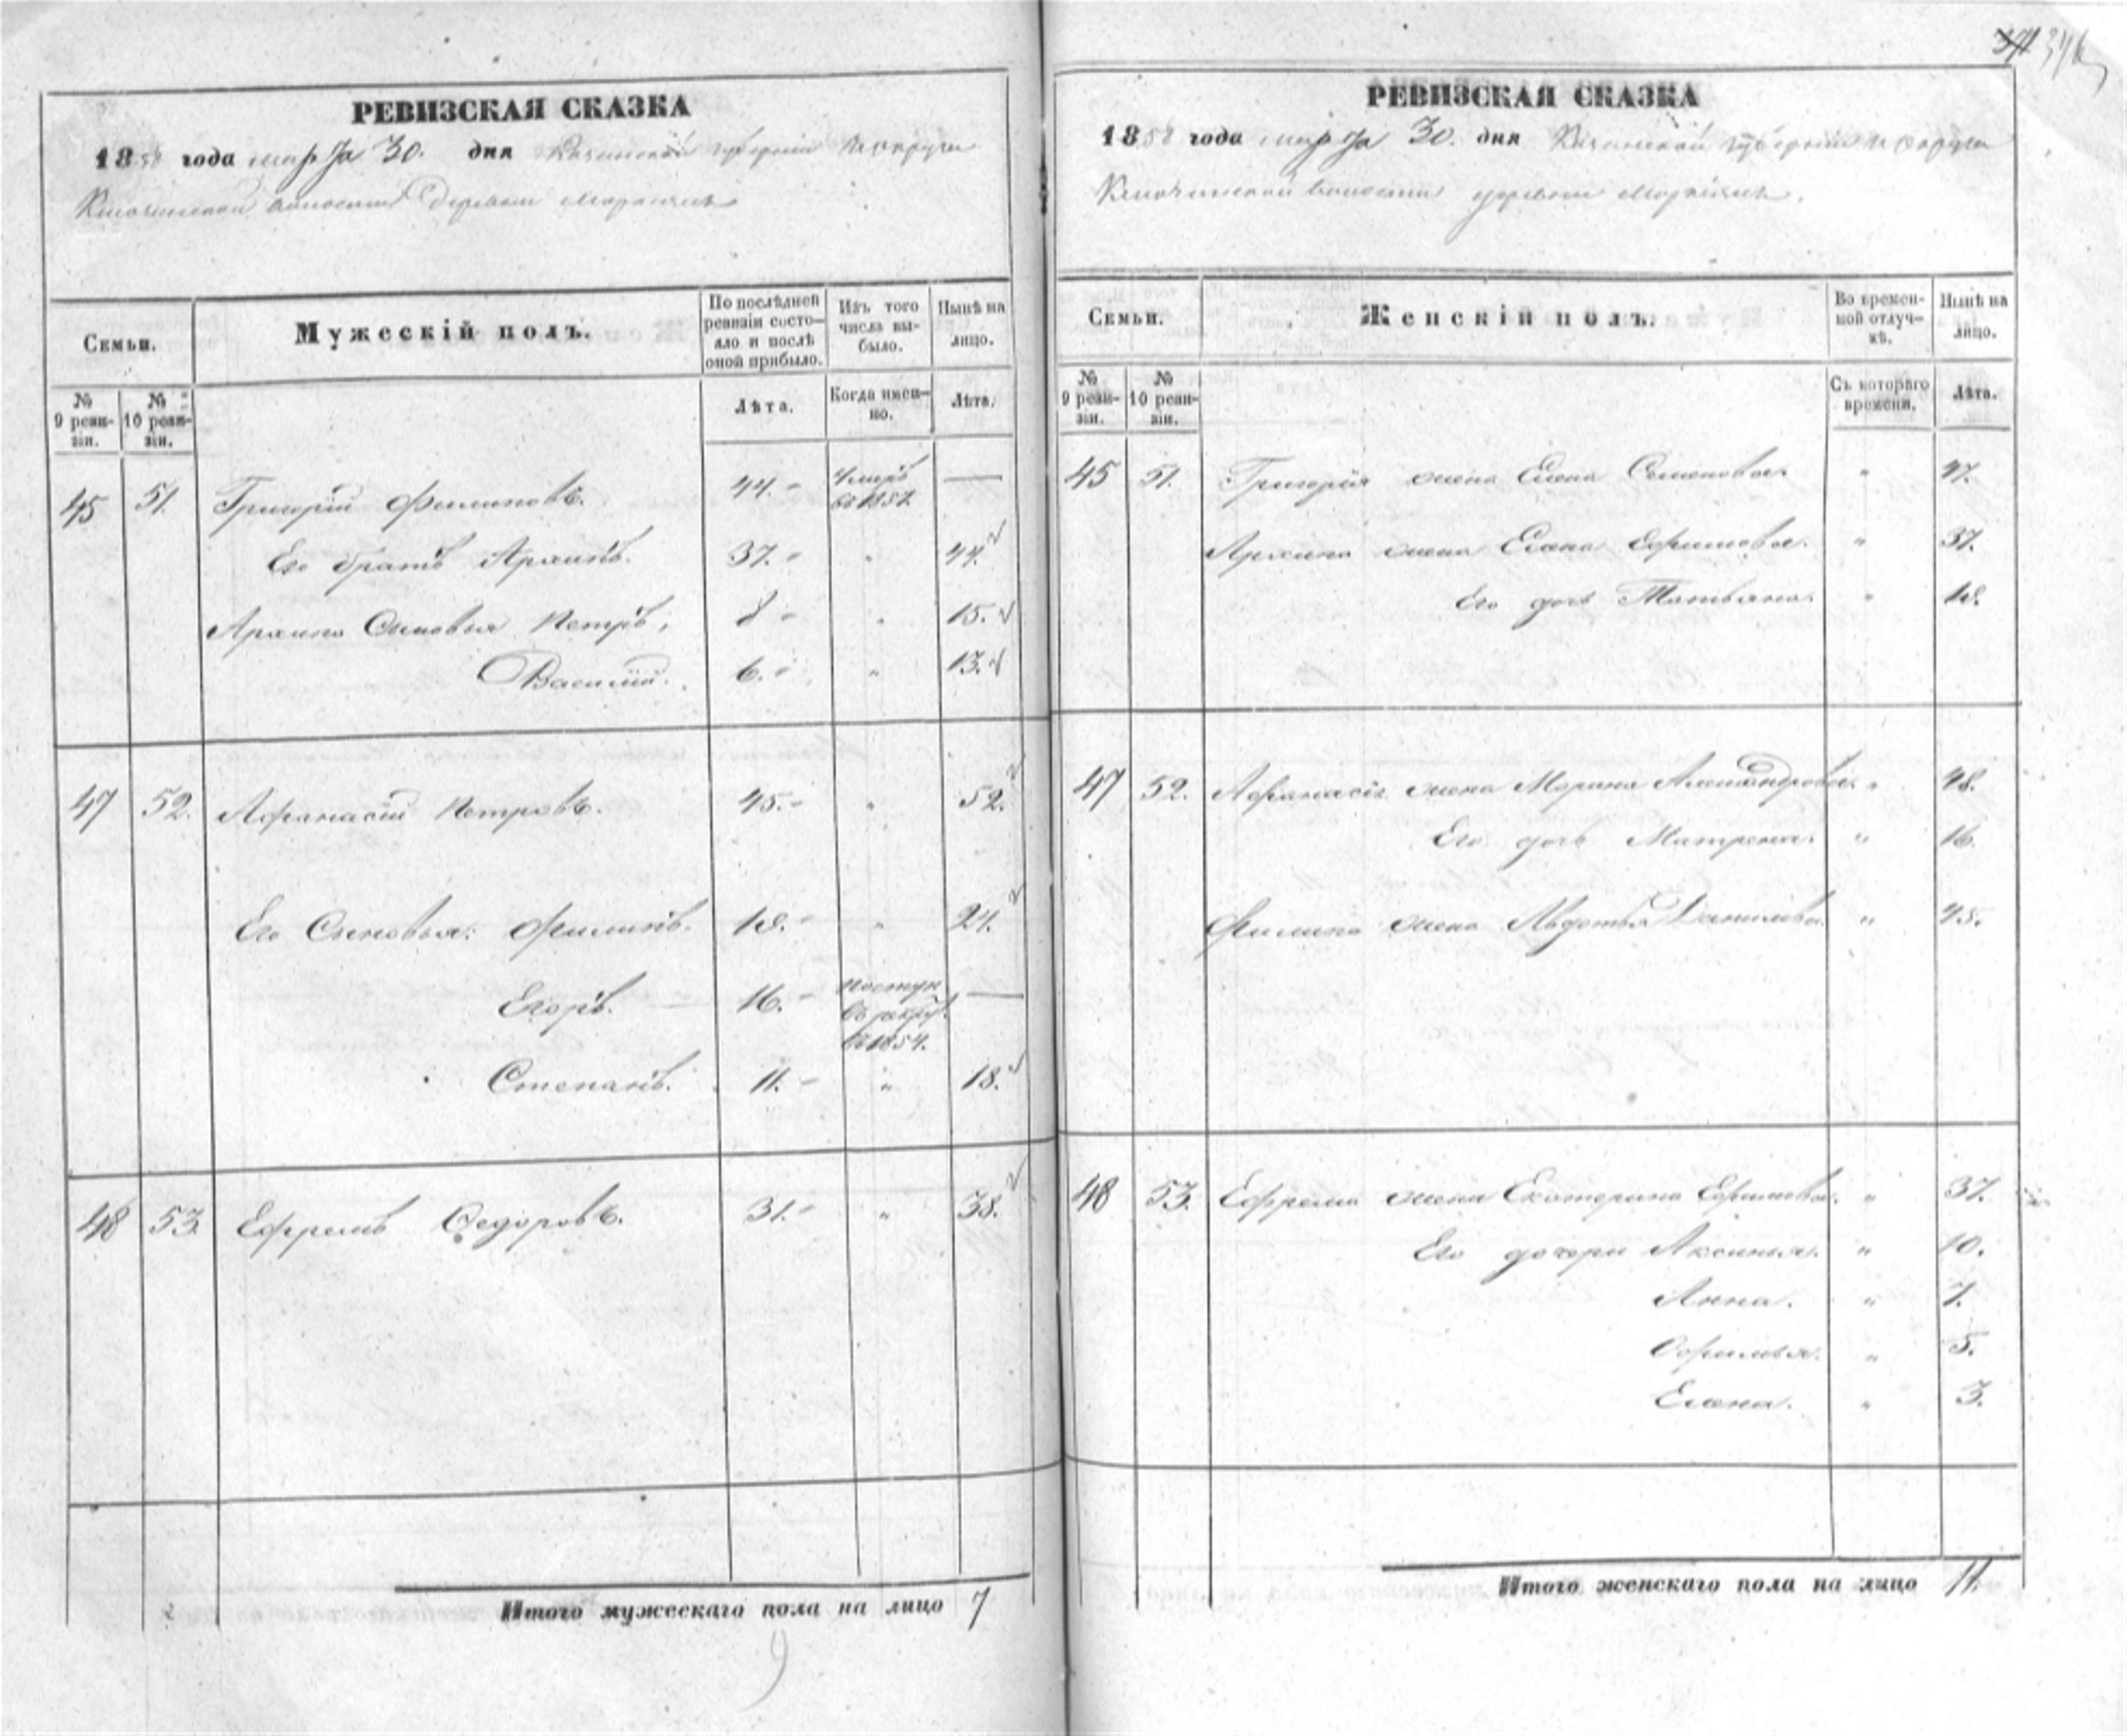 346
РЕВИЗСКАЯ СКАЗКА
1858 года марта 30. дня Казанской губерніи и округи
Ключинской волости Деревни
Семьи.
Мужескій полъ.
По послѣдней ревизіи состояло и послѣ оной прибыло.
Изъ того числа выбыло.
Нынѣ на лицо.
№ 9 ревизіи.
№ 10 ревизіи.
Лѣта.
Когда именно.
Лѣта.
45 51. Григорій Филиповъ. 44. Умеръ въ 1857. —
Его братъ Архипъ. 37. " 44.
Архипа Сыновья Петръ, 8 " 15.
Василій. 6. " 13.
47 52. Афанасій Петровъ. 45. " 52.
Его Сыновья: Филипъ. 18. " 24.
Егоръ. — 16. поступ. въ рекру. въ 1854. —
Степанъ. 11. " 18.
48 53. Ефремъ Федоровъ. 31. " 38.
Итого мужескаго пола на лицо 7
9
РЕВИЗСКАЯ СКАЗКА
1858 года марта 30. дня Казанской губерніи и округи
Ключинской волости деревни
Семьи.
Женскій полъ.
Во временной отлучкѣ.
Нынѣ на лицо.
№ 9 ревизіи.
№ 10 ревизіи.
Съ котораго времени.
Лѣта.
45 51. Григорія жена Елена Семенова. " 47.
Архипа жена Елена Ефимова. " 37.
Его дочь Татьяна. " 18.
47 52. Афанасія жена Марина Александрова. " 48.
Его дочь Матрена. " 16.
Филипа жена Авдотья Данилова. " 25.
48 53. Ефрема жена Екатерина Ефимова. " 37.
Его дочери Аксинья. " 10.
Анна. " 7.
Офимья. " 5.
Елена. " 3.
Итого женскаго пола на лицо 11.